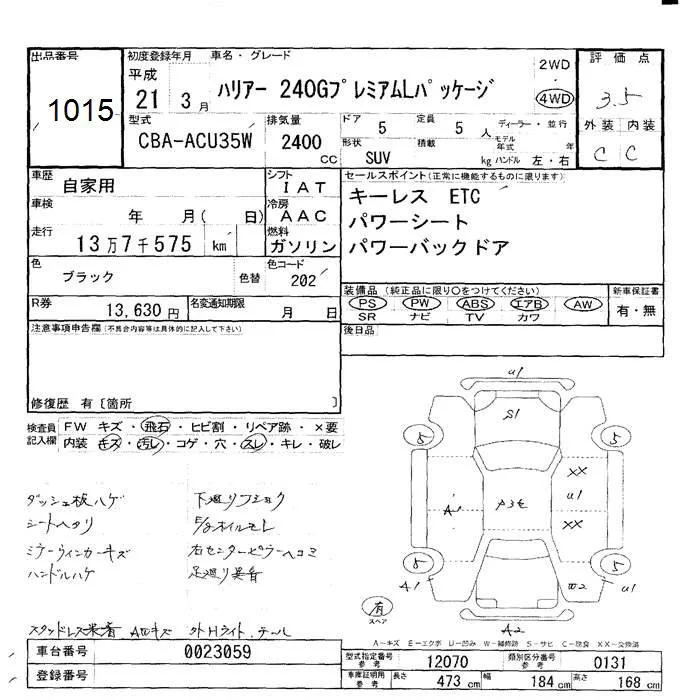 出品番号 初度登録年月 車名・グレード 評価点
1015 平成 21 3月 ハリアー 240GプレミアムLパッケージ 2WD 4WD 3.5
外装 内装
C C
型式 排気量 ドア 5 定員 5人 ディーラー・並行
CBA-ACU35W 2400 cc 形状 SUV 積載 kg モデル年式 年 ハンドル 左・右
車歴 自家用 シフト IAT セールスポイント(正常に機能するものに限ります)
車検 年 月( 日) 冷房 AAC キーレス ETC
パワーシート
走行 13万7千575 km 燃料 ガソリン パワーバックドア
色 ブラック 色替 色コード 202
装備品 (純正品に限り〇をつけてください) 新車保証書
PS PW ABS エアB AW 有・無
SR ナビ TV カワ
R券 13,630円 名変通知期限 月 日
後日品
注意事項申告欄(不具合内容等は具体的に記入して下さい)
修復歴 有〔箇所 〕
検査員記入欄 FW キズ・飛石・ヒビ割・リペア跡・×要
内装 キズ・汚レ・コゲ・穴・スレ・キレ・破レ
ダッシュ板ハゲ 下廻リフショク
シートヘタリ 5/8ホイルモレ
ミラーウィンカーキズ 右センターピラーヘコミ
ハンドルハゲ 足廻リ異音
AWキズ 外Hライト、テール
U1
S1
5 5
XX
A1 U1
XX
5 5
A1 W2 U1
有
スペア
A2
A-キズ E-エクボ U-凹み W-補修跡 S-サビ C-腐食 XX-交換済
車台番号 0023059
登録番号
型式指定番号 参考 12070 類別区分番号 参考 0131
車庫証明用 参考 長さ 473cm 幅 184cm 高さ 168cm